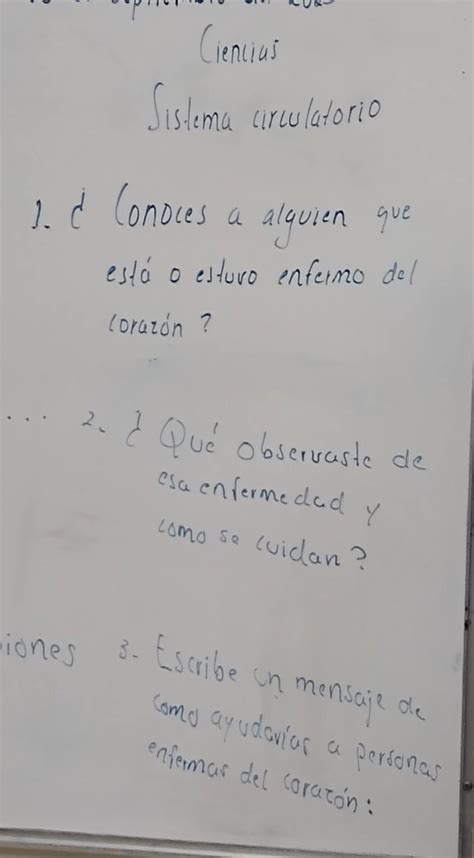 Ciencias
Sistema circulatorio
1. ¿ Conoces a alguien que
está o estuvo enfermo del
corazón ?
... 2. ¿ Qué observaste de
esa enfermedad y
como se cuidan?
iones 3. Escribe un mensaje de
como ayudarías a personas
enfermas del corazón: